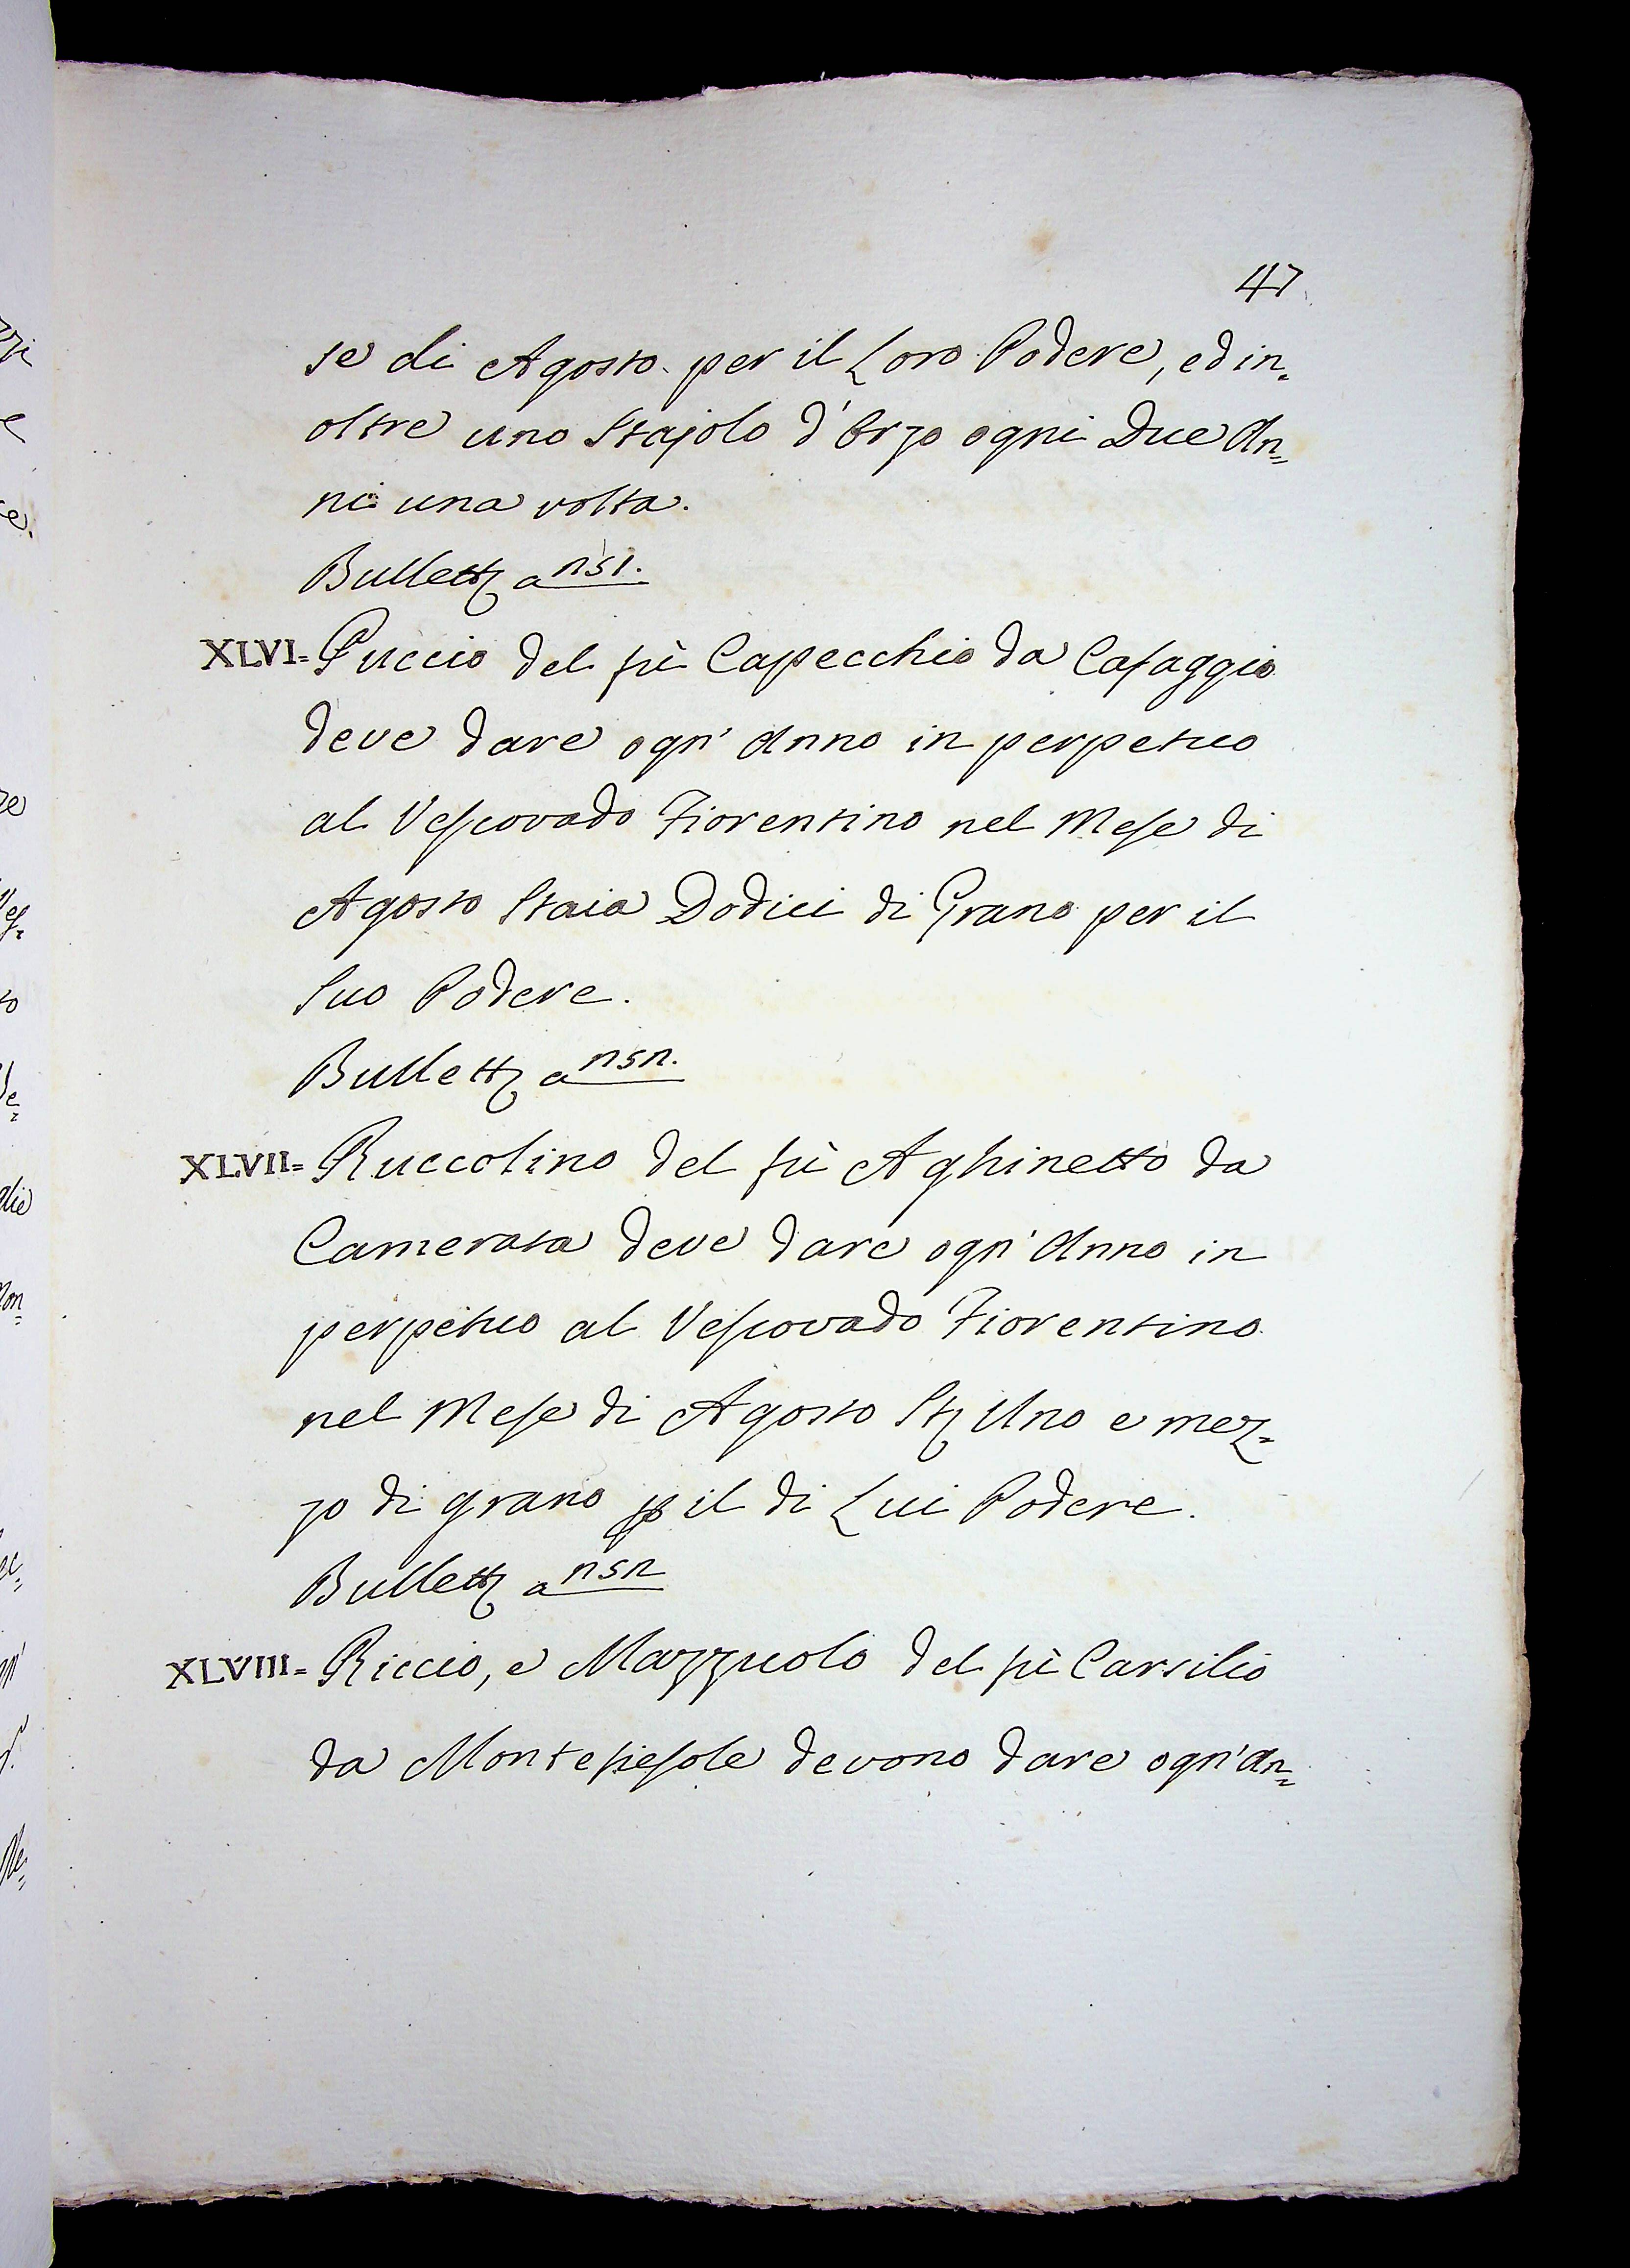 47
se di Agosto per il Loro Podere, ed in=
oltre uno Stajolo d'Orzo ogni Due An=
ni una volta.
Bullett a n51.
XLVI= Puccio del fù Capecchio da Cafaggio
deve dare ogn' Anno in perpetuo
al Vescovado Fiorentino nel Mese di
Agosto Staia Dodici di Grano per il
Suo Podere.
Bullett a n5n.
XLVII= Ruccolino del fù Aghinetto da
Camerata deve dare ogn' Anno in
perpetuo al Vescovado Fiorentino
nel Mese di Agosto St Uno e mez=
zo di grano p il di Lui Podere.
Bullett a n5n
XLVIII= Riccio, e Mazzuolo del fù Carsilio
da Montefiesole devono dare ogn' An=